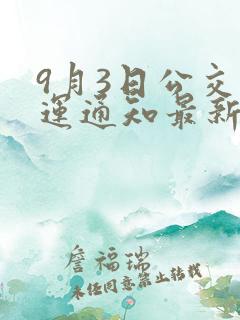 9月3日公交
運通知最新
詹福瑞
未经同意禁止转载